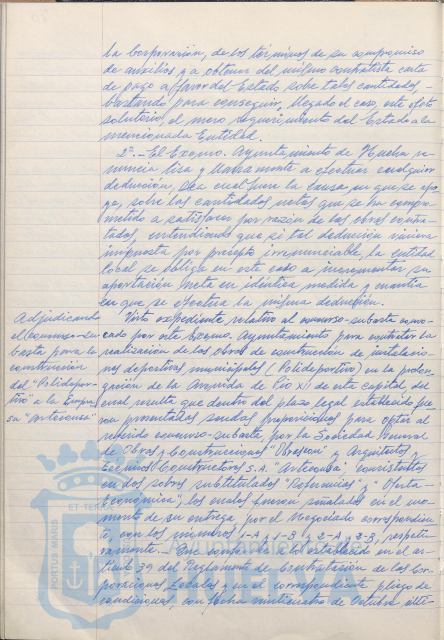 la Corporación, de los términos de su compromiso
de auxilios y a obtener del mismo contratista carta
de pago a favor del Estado sobre tales cantidades,
bastando para conseguir, llegado el caso, este efecto
solutorio, el mero requerimiento del Estado a la
mencionada Entidad.
2º.- El Excmo. Ayuntamiento de Huelva re-
nuncia lisa y llanamente a efectuar cualquier
deducción, sea cual fuere la causa en que se apo-
ye, sobre las cantidades netas que se ha compro-
metido a satisfacer por razón de las obras contra-
tadas, entendiendo que si tal deducción viniera
impuesta por precepto irrenunciable, la entidad
local se obliga en este caso a incrementar su
aportación neta en idéntica medida y cuantía
en que se efectúa la misma deducción.
Adjudicando
el concurso-su-
basta para la
construcción
del "Polidepor-
tivo" a la Empre-
sa "Arteconsa"
Visto expediente relativo al concurso-subasta convo-
cado por este Excmo. Ayuntamiento para contratar la
realización de las obras de construcción de instalacio-
nes deportivas municipales (Polideportivo) en la prolon-
gación de la Avenida de Pio XII de esta capital, del
cual resulta que dentro del plazo legal establecido fue-
ron presentadas sendas proposiciones para optar al
referido concurso-subasta, por la Sociedad General
de Obras y Construcciones "Obrascon" y Arquitectos y
Técnicos Constructores S.A. "Arteconsa" consistentes
en dos sobres subtitulados "Referencias" y "Oferta
Económica", los cuales fueron señalados en el mo-
mento de su entrega por el Negociado correspondien-
te, con los números 1-A y 1-B y 2-A y 2-B, respecti-
vamente.- En conformidad a lo establecido en el ar-
tículo 39 del Reglamento de Contratación de las Cor-
poraciones Locales y en el correspondiente pliego de
condiciones, con fecha veinticuatro de Octubre últi-
PORTUS MARIS
ET TERRAE
HUELVA